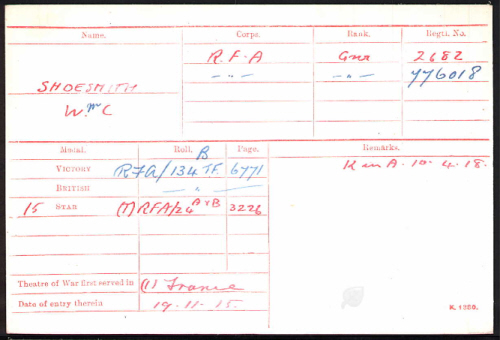 Name. Corps. Rank. Regtl. No.
R.F.A Gnr 2682
—"— —"— 776018
SHOESMITH
W.m C
Medal. Roll. Page. Remarks.
VICTORY RFA/134 B TF 6771 K in A. 10.4.18.
BRITISH —"— —"—
15 STAR (1) RFA/24 A+B 3226
Theatre of War first served in (1) France
Date of entry therein 19.11.15.
K. 1380.